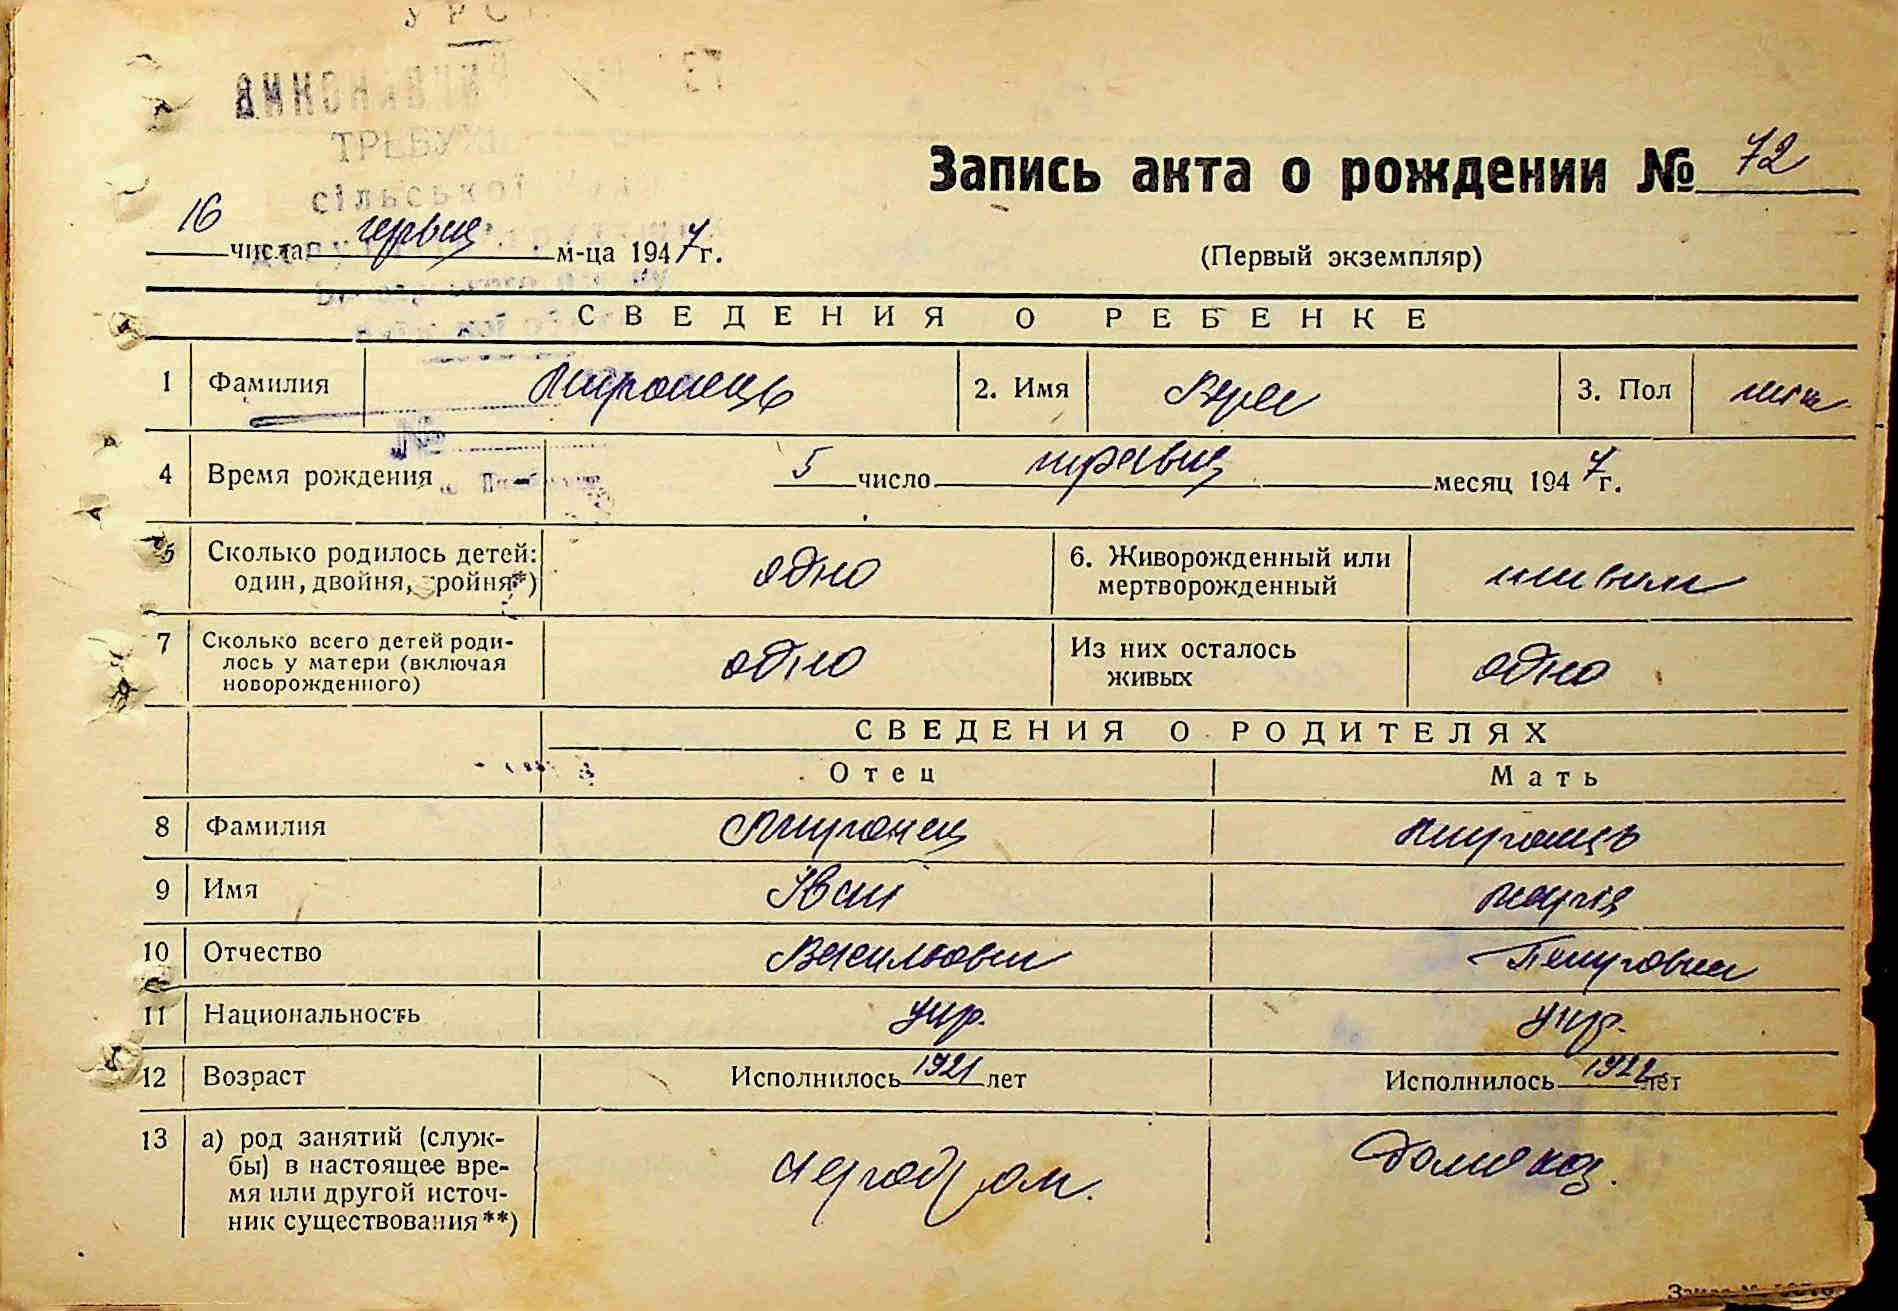 УРС
ВИКОНАВЧИЙ
ТРЕБУХ
сільської
Запись акта о рождении № 72
16 числа червня м-ца 1947 г.
(Первый экземпляр)
СВЕДЕНИЯ О РЕБЕНКЕ
1 Фамилия Миронець 2. Имя Вера 3. Пол жін
№
4 Время рождения 5 число травня месяц 1947 г.
5 Сколько родилось детей: один, двойня, тройня*) одно 6. Живорожденный или мертворожденный живим
7 Сколько всего детей родилось у матери (включая новорожденного) одно Из них осталось живых одно
СВЕДЕНИЯ О РОДИТЕЛЯХ
Отец Мать
8 Фамилия Миронец Миронець
9 Имя Іван Марія
10 Отчество Васильович Петровна
11 Национальность укр. укр.
12 Возраст Исполнилось 1921 лет Исполнилось 1922 лет
13 а) род занятий (службы) в настоящее время или другой источник существования**) Домохоз.